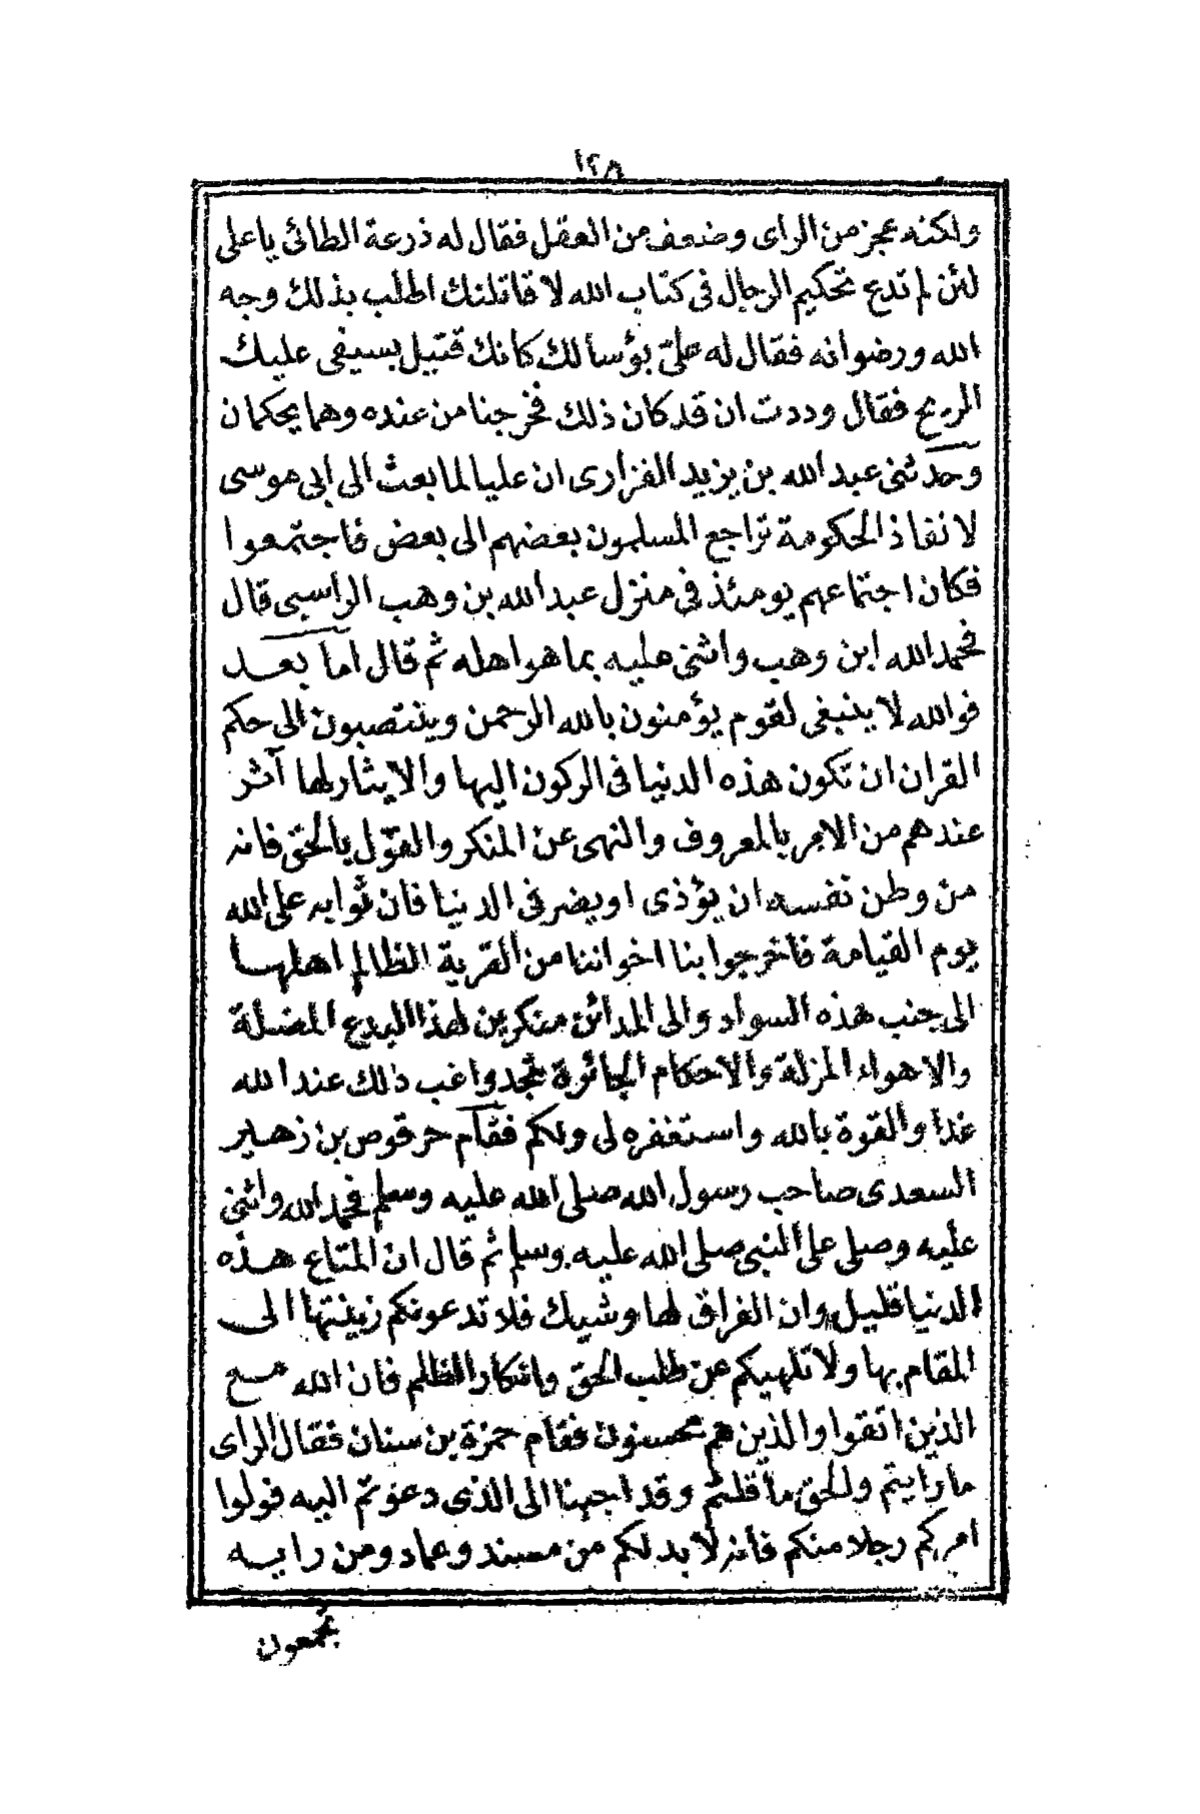 ١٢٨
ولكنه عجز من الراى وضعف من العقل فقال له ذرعة الطائى ياعلى
لئن لم تدع تحكيم الرجال فى كتاب الله لا قاتلنك اطلب بذلك وجه
الله ورضوانه فقال له علىّ بؤسا لك كانك قتيل بسيفى عليك
الريح فقال وددت ان قد كان ذلك فخرجنا من عنده وهما يحكمان
وحدثنى عبد الله بن يزيد الفزارى ان عليا لما بعث الى ابى موسى
لانفاذ الحكومة تراجع المسلمون بعضهم الى بعض فاجتمعوا
فكان اجتماعهم يومئذ فى منزل عبد الله بن وهب الراسبى قال
فحمد الله ابن وهب واثنى عليه بما هو اهله ثم قال اما بعد
فوالله لا ينبغى لقوم يؤمنون بالله الرحمن وينتصبون الى حكم
القران ان تكون هذه الدنيا فى الركون اليها والايثار لها آثر
عندهم من الامر بالمعروف والنهى عن المنكر والقول بالحق فانه
من وطن نفسه ان يؤذى او يضر فى الدنيا فان ثوابه على الله
يوم القيامة فأخرجوا بنا اخواننا من القرية الظالم اهلها
الى جنب هذه السواد والى المدائن منكرين لهذا البدع المضلة
والاهواء المزلة والاحكام الجائرة تجدوا غب ذلك عند الله
غدا والقوة بالله واستغفره لى ولكم فقام حرقوص بن زهير
السعدى صاحب رسول الله صلى الله عليه وسلم فحمد الله واثنى
عليه وصلى على النبى صلى الله عليه وسلم ثم قال ان المتاع هذه
الدنيا قليل وان الفراق لها وشيك فلا تدعونكم زينتها الى
المقام بها ولا تلهيكم عن طلب الحق وانكار الظلم فان الله مع
الذين اتقوا والذين هم محسنون فقام حمزة بن سنان فقال الراى
ما رايتم والحق ما قلتم وقد اجبنا الى الذى دعوتم اليه فولوا
امركم رجلا منكم فانه لا بد لكم من مسند وعماد ومن راية
يجمعون